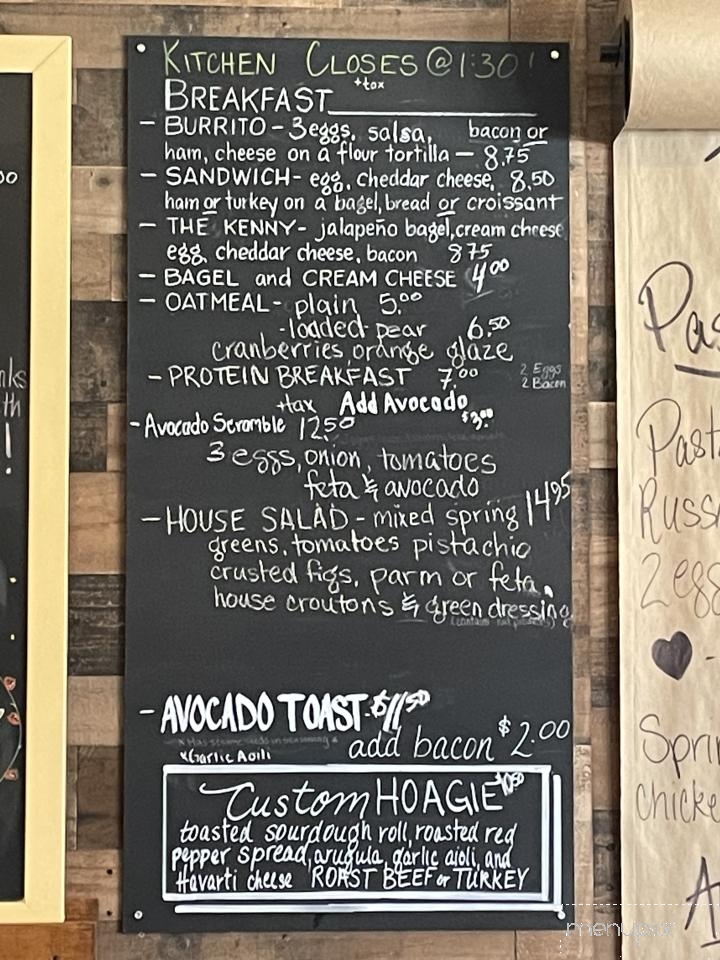 KITCHEN CLOSES @ 1:30!
+tax
BREAKFAST
- BURRITO - 3 eggs, salsa, bacon or
ham, cheese on a flour tortilla - 8.75
- SANDWICH - egg, cheddar cheese, 8.50
ham or turkey on a bagel, bread or croissant
- THE KENNY - jalapeño bagel, cream cheese
egg, cheddar cheese, bacon 875
- BAGEL and CREAM CHEESE 4.00
- OATMEAL - plain 5.00
- loaded pear 6.50
cranberries, orange glaze
- PROTEIN BREAKFAST 7.00 2 Eggs
2 Bacon
+tax Add Avocado $3.00
- Avocado Scramble 12.50
3 eggs, onion, tomatoes
feta & avocado
- HOUSE SALAD - mixed spring 14.95
greens, tomatoes pistachio
crusted figs, parm or feta,
house croutons & green dressing
- AVOCADO TOAST - $11.50
add bacon $2.00
*Garlic Aoili
Custom HOAGIE 10.50
toasted sourdough roll, roasted red
pepper spread, arugula, garlic aioli, and
Havarti cheese ROAST BEEF or TURKEY
Russ
2 egg
Sprin
chicke